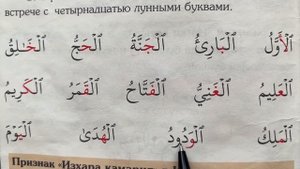 встрече с четырнадцатью лунными буквами.
اَلْاَوَّلُ اَلْبَارِئُ اَلْجَنَّةُ اَلْحَجُّ اَلْخَالِقُ
اَلْعَلِيمُ اَلْغَنِيُّ اَلْفَتَّاحُ اَلْقَمَرُ اَلْكَرِيمُ
اَلْمَلِكُ اَلْوَدُودُ اَلْهُدَىٰ اَلْيَوْمَ
Признак «Изхара